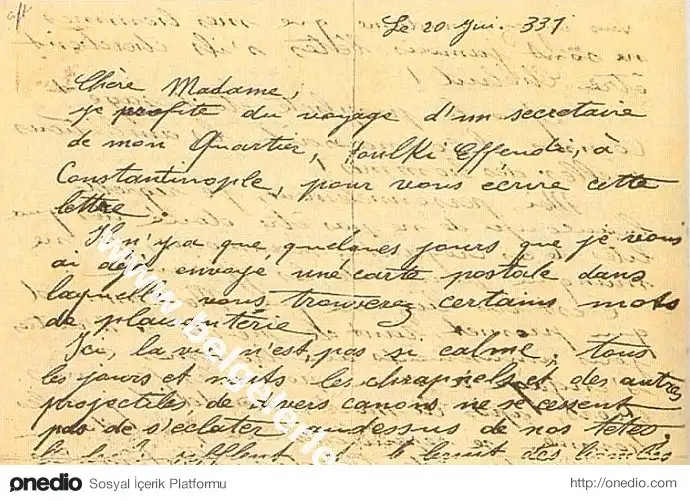 Le 20 Jui. 331
Chère Madame,
je profite du voyage d'un secretaire
de mon Quartier, Houlki Effendi, à
Constantinople, pour vous écrire cette
lettre.
Il n'y a que quelques jours que je vous
ai deja envoyé une carte postale dans
laquelle vous trouverez certains mots
de plaisanterie
Ici, la vie n'est pas si calme, tous
les jours et nuits les chrapnels et des autres
projectiles de divers canons ne se cessent
pas de s'éclater audessus de nos têtes,
et le bruit des bombes
www.belgelerle
onedio Sosyal İçerik Platformu
http://onedio.com/